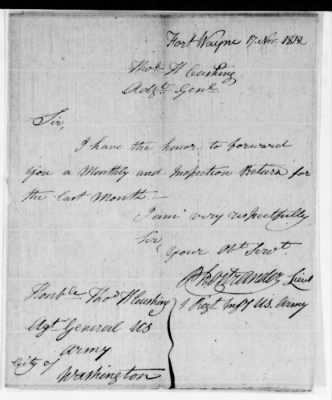 Fort Wayne 17 Nov. 1812
Thos. H Cushing
Adgt. Genl.
Sir,
I have the honor to forward
you a Monthly and Inspection Return for
the last Month.—
I am very respectfully
Sir
Your Obt. Servt.
Ph Ostrander Lieut
1 Regt Infy US. Army
Honble. Thos H Cushing
Agt General US
Army
City of
Washington